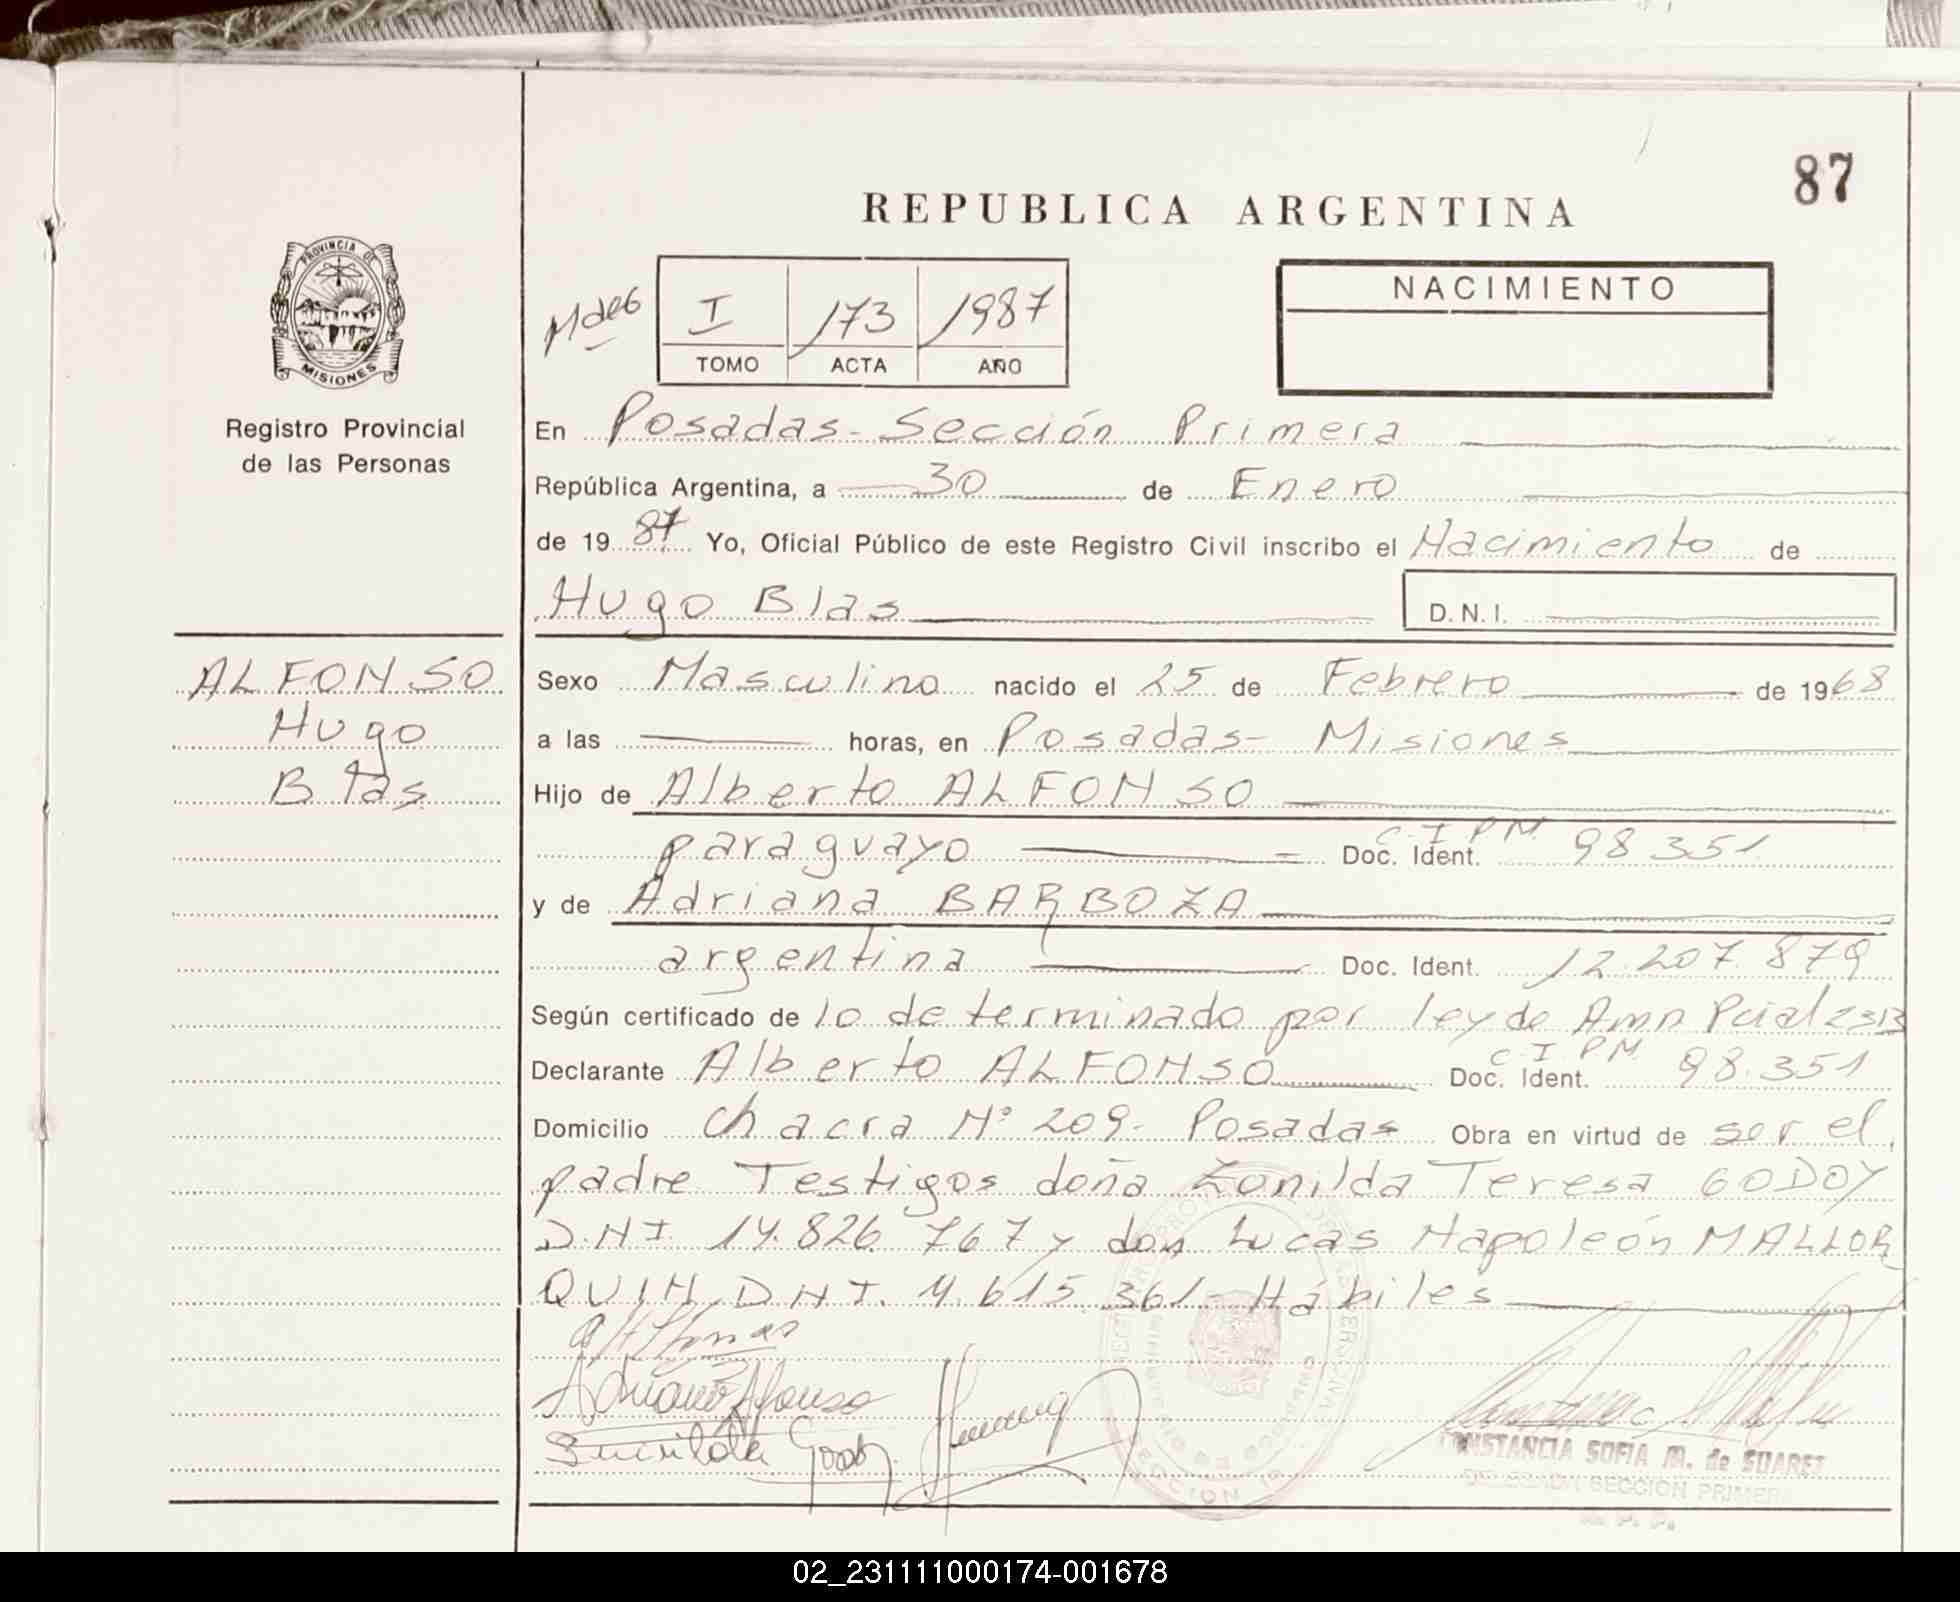 87
REPUBLICA ARGENTINA
PROVINCIA DE
MISIONES
Registro Provincial
de las Personas
I 173 1987
TOMO ACTA AÑO
NACIMIENTO
En Posadas - Sección Primera
República Argentina, a 30 de Enero
de 1987 Yo, Oficial Público de este Registro Civil inscribo el Nacimiento de
Hugo Blas D.N.I.
ALFONSO
Hugo
Blas
Sexo Masculino nacido el 25 de Febrero de 1968
a las horas, en Posadas - Misiones
Hijo de Alberto ALFONSO
paraguayo Doc. Ident. C.I.P.M. 98351
y de Adriana BARBOZA
argentina Doc. Ident. 12.207.879
Según certificado de lo determinado por ley de Amn Pcial 2313
Declarante Alberto ALFONSO Doc. Ident. C.I.P.M. 98.351
Domicilio Chacra N° 209 - Posadas Obra en virtud de ser el
padre Testigos doña Zunilda Teresa GODOY
D.N.I. 14.826.767 y don Lucas Napoleón MALLOR
QUIN D.N.I. 4.615.361 - Hábiles
Adriana Alfonso
Zunilda Godoy
CONSTANCIA SOFIA M. de SUAREZ
SECCION PRIMERA
R. P. P.
02_231111000174-001678